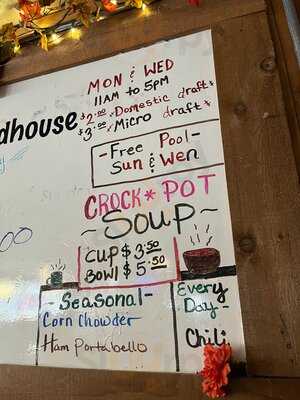 dhouse
MON & WED
11AM to 5PM
$2.00 *Domestic draft*
$3.00 *Micro draft*
- Free Pool -
Sun & Wen
CROCK * POT
~ Soup ~
Cup $3.50
Bowl $5.50
- Seasonal -
Corn Chowder
Ham Portabello
Every
Day -
Chili